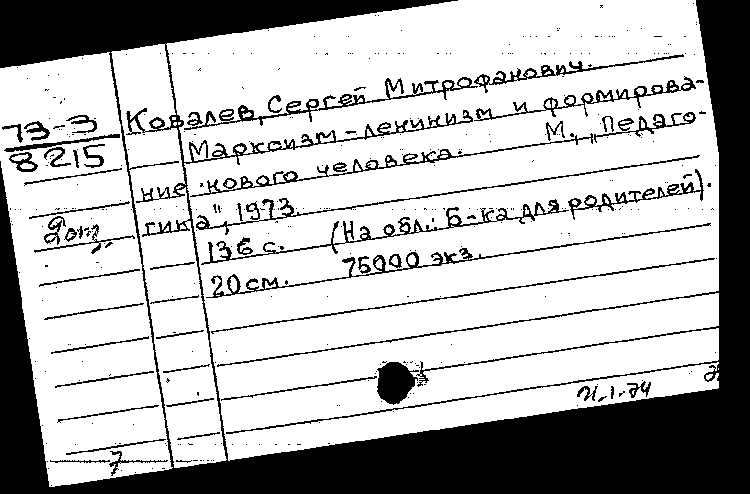 73-3
8215
Ковалев, Сергей Митрофанович.
Марксизм-ленинизм и формирова-
ние нового человека. М., „Педаго-
гика", 1973.
136 с. (На обл.: Б-ка для родителей).
20 см. 75000 экз.
7